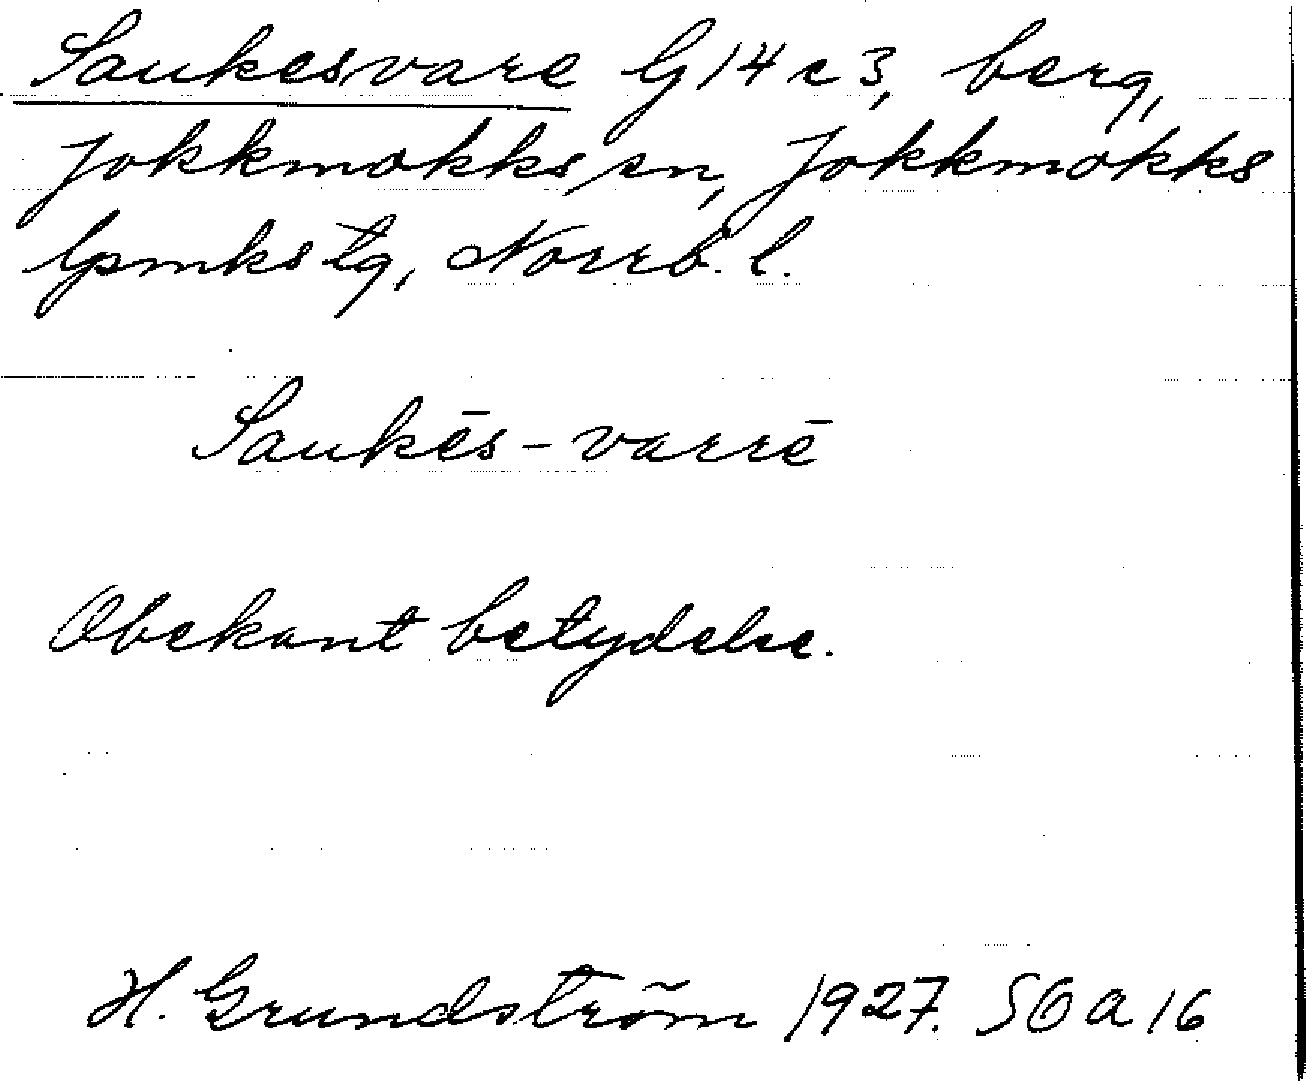 Saukesvare G14c3, berg,
Jokkmokks sn, Jokkmokks
lpmks tg, Norrb. l.
Saukēs-varrē
Obekant betydelse.
H. Grundström 1927. SOA16